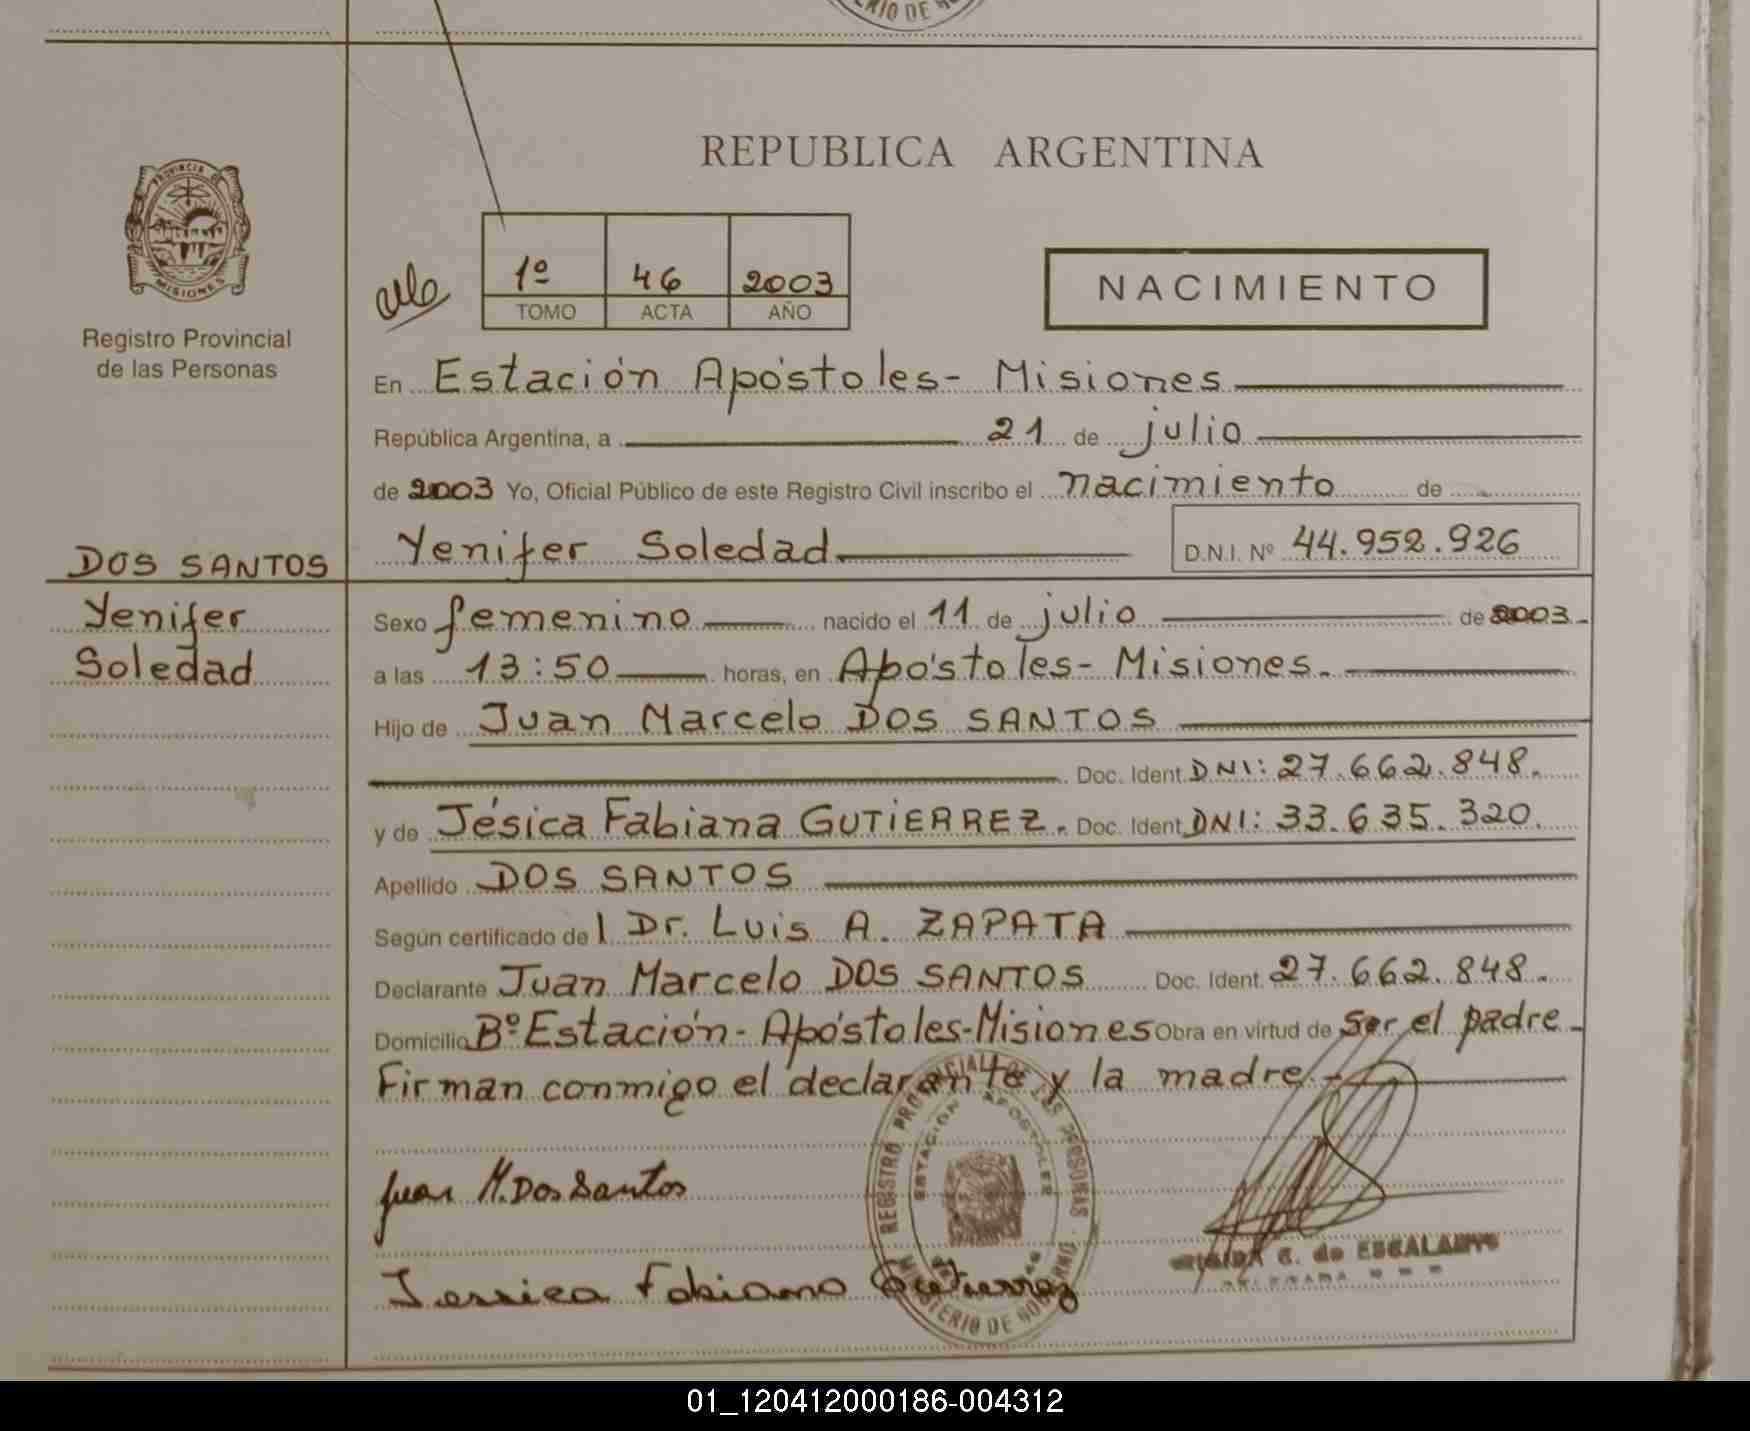 RIO DE
REPUBLICA ARGENTINA
PROVINCIA DE
MISIONES
Registro Provincial
de las Personas
1º 46 2003
TOMO ACTA AÑO
NACIMIENTO
En Estación Apóstoles- Misiones
República Argentina, a 21 de julio
de 2003 Yo, Oficial Público de este Registro Civil inscribo el nacimiento de
Yenifer Soledad D.N.I. Nº 44.952.926
DOS SANTOS
Yenifer
Soledad
Sexo femenino nacido el 11 de julio de 2003.-
a las 13:50 horas, en Apóstoles- Misiones.-
Hijo de Juan Marcelo DOS SANTOS
Doc. Ident. DNI: 27.662.848.
y de Jésica Fabiana GUTIERREZ. Doc. Ident. DNI: 33.635.320.
Apellido DOS SANTOS
Según certificado del Dr. Luis A. ZAPATA
Declarante Juan Marcelo DOS SANTOS Doc. Ident. 27.662.848.
Domicilio Bº Estación- Apóstoles-Misiones Obra en virtud de ser el padre-
Firman conmigo el declarante y la madre.-
REGISTRO PROVINCIAL DE LAS PERSONAS
ESTACION APOSTOLES
MINISTERIO DE GOBIERNO
Juan M. Dos Santos
Jessica Fabiana Gutierrez
C. de ESCALANTE
01_120412000186-004312